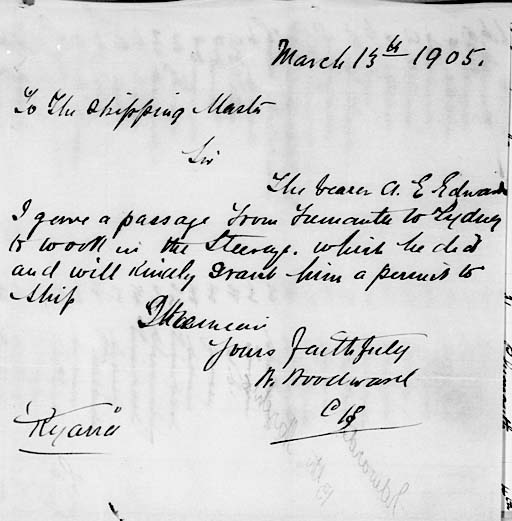 March 13th 1905.
To The Shipping Master
Sir
The bearer A. E Edwards
I gave a passage from Fremantle to Sydney
to work in the Steerage. which he did
and will kindly grant him a permit to
ship
I Remain
Yours Faithfully
W. Woodward
C/S
"Kyarra"